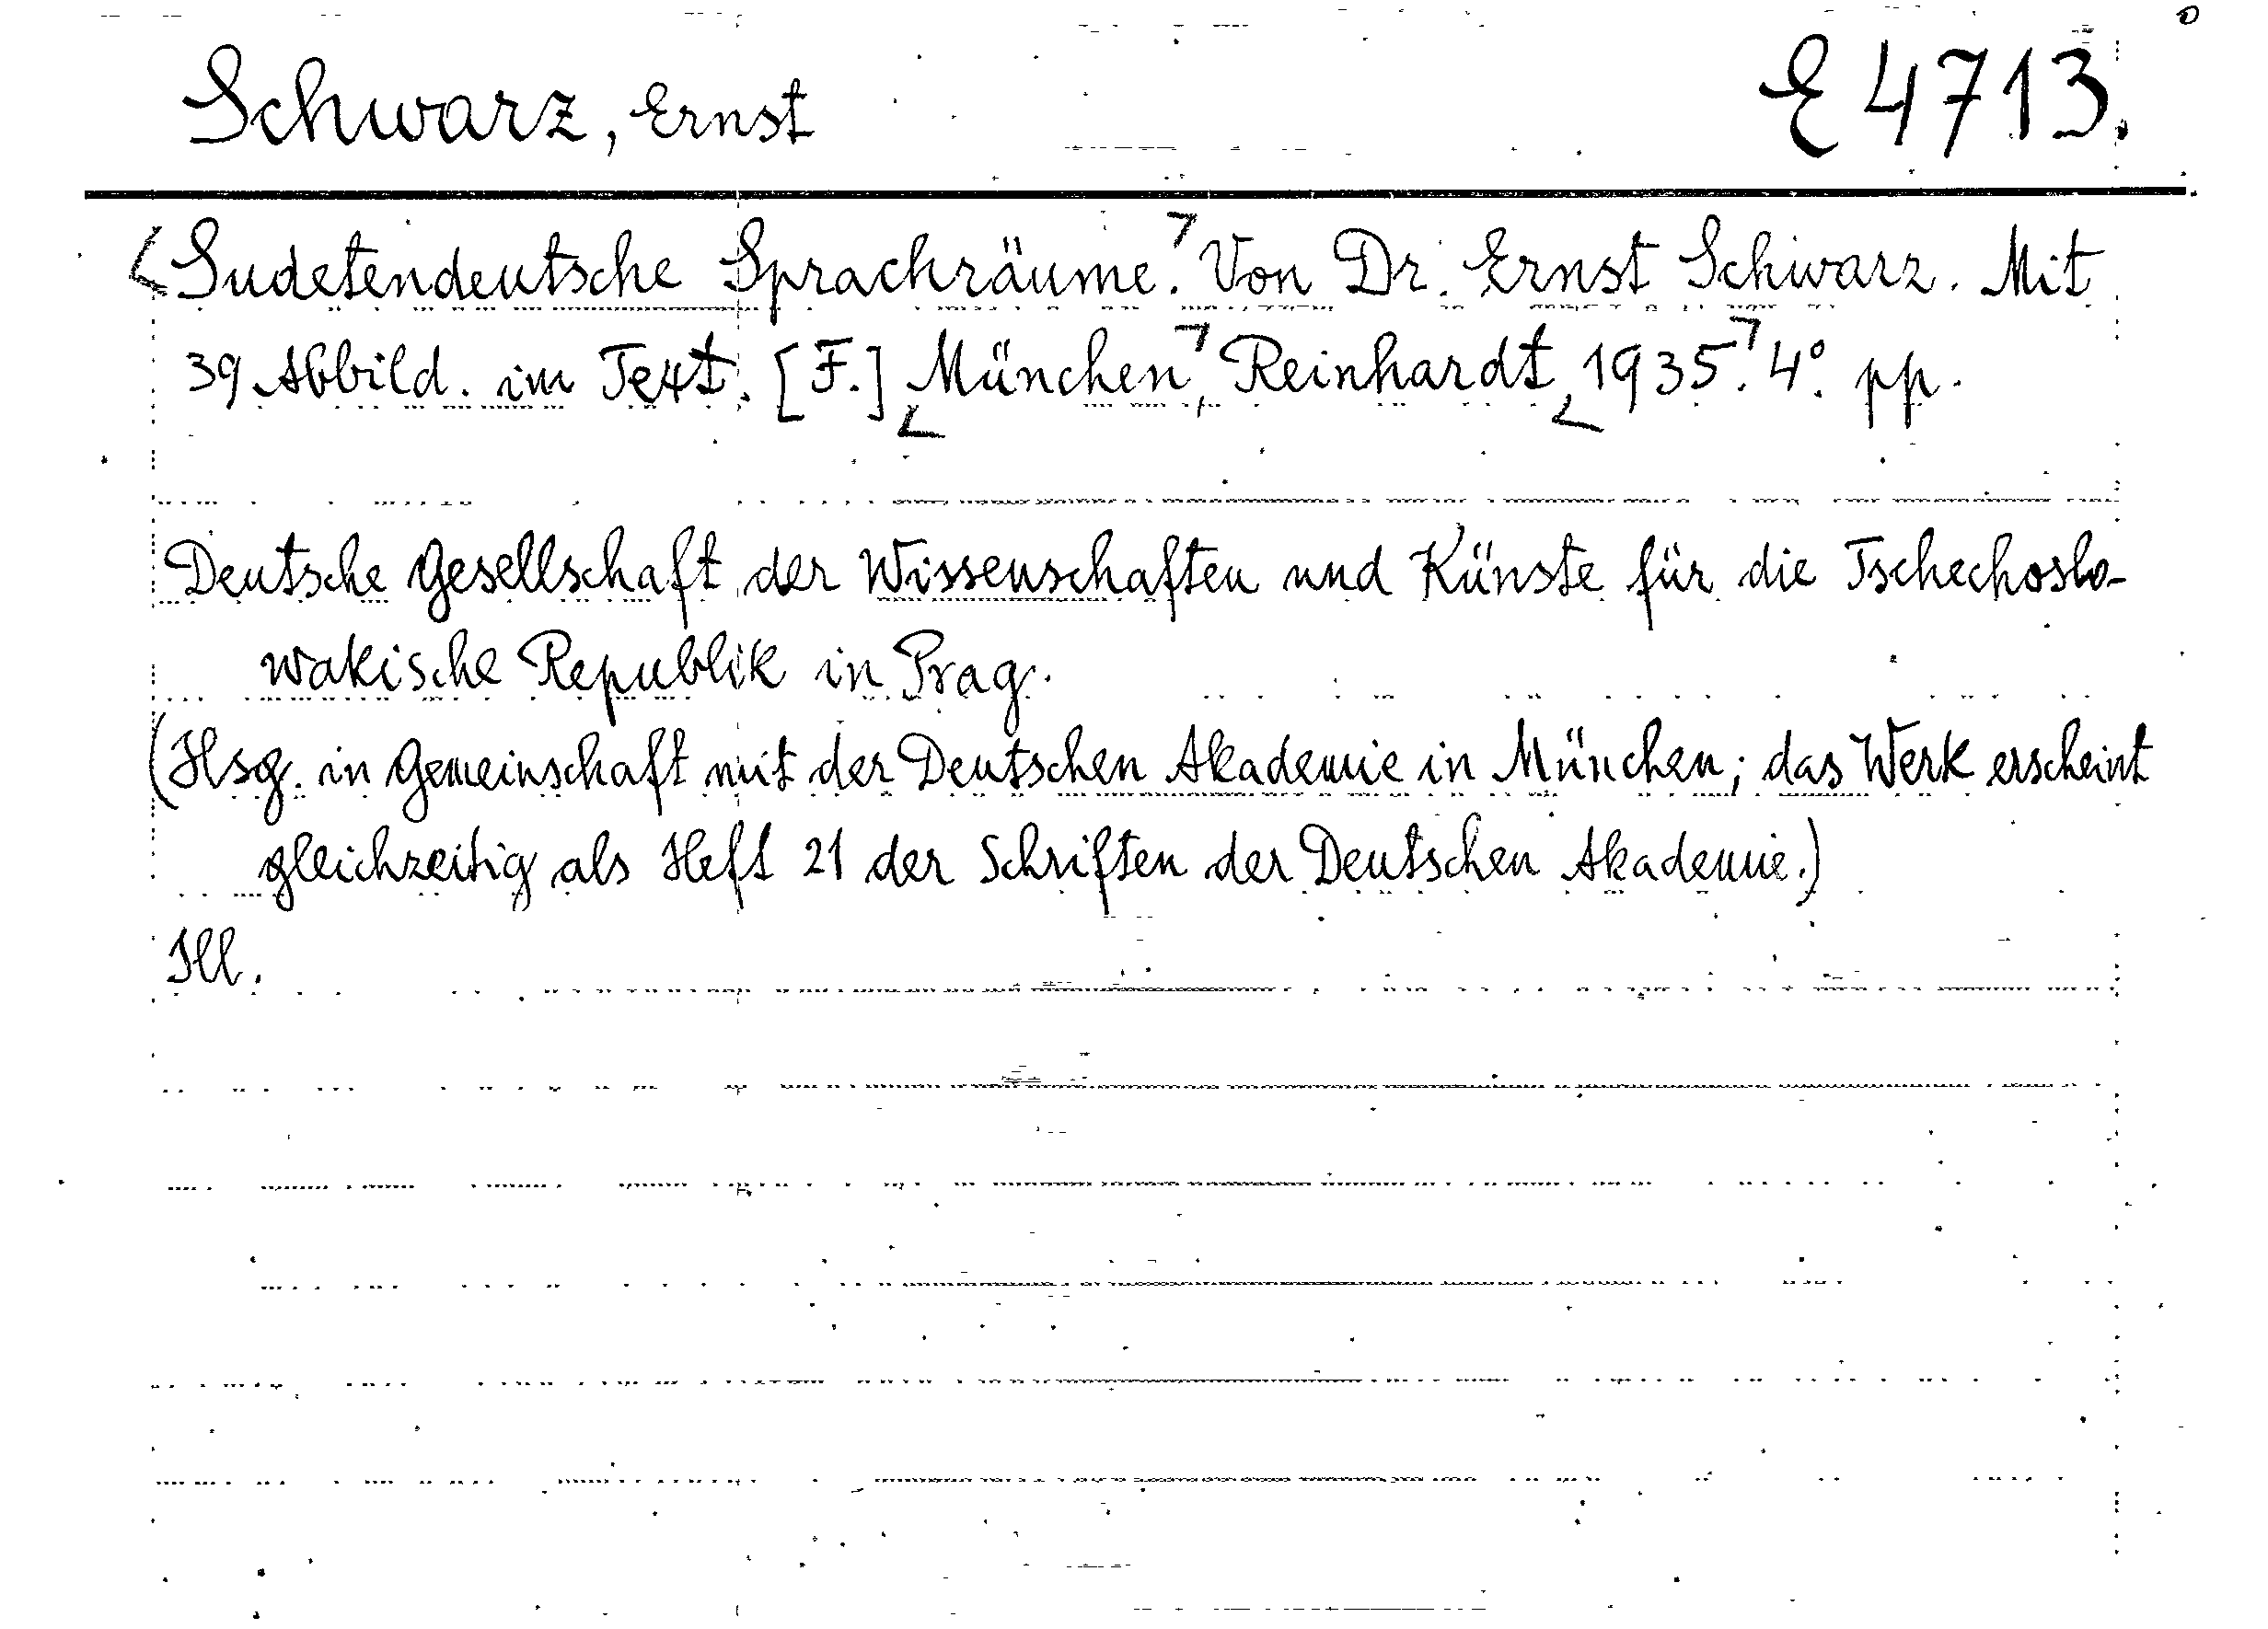 Schwarz, Ernst E 4713.
Sudetendeutsche Sprachräume. Von Dr. Ernst Schwarz. Mit
39 Abbild. im Text. [F.] München, Reinhardt, 1935. 4°. pp.
Deutsche Gesellschaft der Wissenschaften und Künste für die Tschechoslo-
wakische Republik in Prag.
(Hsg. in Gemeinschaft mit der Deutschen Akademie in München; das Werk erscheint
gleichzeitig als Heft 21 der Schriften der Deutschen Akademie.)
Ill.